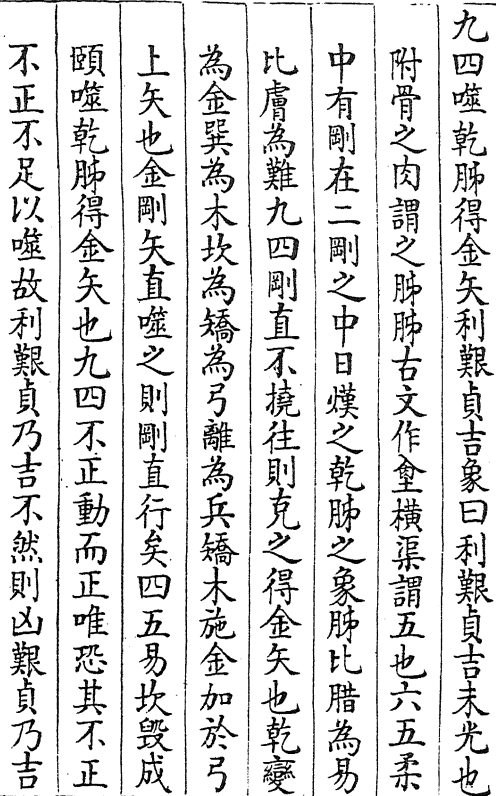 九四噬乾胏得金矢利艱貞吉象曰利艱貞吉未光也
附骨之肉謂之胏胏古文作𠊏橫渠謂五也六五柔
中有剛在二剛之中日熯之乾胏之象胏比腊為易
比膚為難九四剛直不撓往則克之得金矢也乾變
為金巽為木坎為矯為弓離為兵矯木施金加於弓
上矢也金剛矢直噬之則剛直行矣四五易坎毀成
頤噬乾胏得金矢也九四不正動而正唯恐其不正
不正不足以噬故利艱貞乃吉不然則凶艱貞乃吉